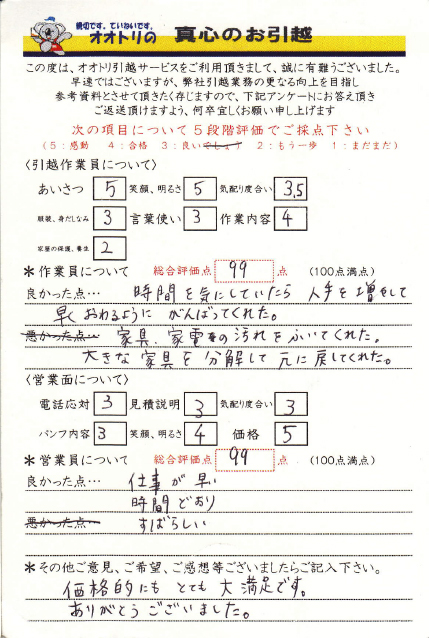 親切です。ていねいです。
オオトリの 真心のお引越
この度は、オオトリ引越サービスをご利用頂きまして、誠に有難うございました。
早速ではございますが、弊社引越業務の更なる向上を目指し
参考資料とさせて頂きたく存じますので、下記アンケートにお答え頂き
ご返送頂けますよう、何卒宜しくお願い申し上げます
次の項目について5段階評価でご採点下さい
(5:感動 4:合格 3:良いでしょう 2:もう一歩 1:まだまだ)
〈引越作業員について〉
あいさつ 5 笑顔、明るさ 5 気配り度合い 3.5
服装、身だしなみ 3 言葉使い 3 作業内容 4
家屋の保護、養生 2
＊作業員について 総合評価点 99 点 (100点満点)
良かった点… 時間を気にしていたら 人手を増をして
早くおわるように がんばってくれた。
悪かった点… 家具、家電の汚れをふいてくれた。
大きな家具を分解して元に戻してくれた。
〈営業面について〉
電話応対 3 見積説明 3 気配り度合い 3
パンフ内容 3 笑顔、明るさ 4 価格 5
＊営業員について 総合評価点 99 点 (100点満点)
良かった点… 仕事が早い
時間どおり
悪かった点… すばらしい
＊その他ご意見、ご希望、ご感想等ございましたらご記入下さい。
価格的にもとても大満足です。
ありがとうございました。